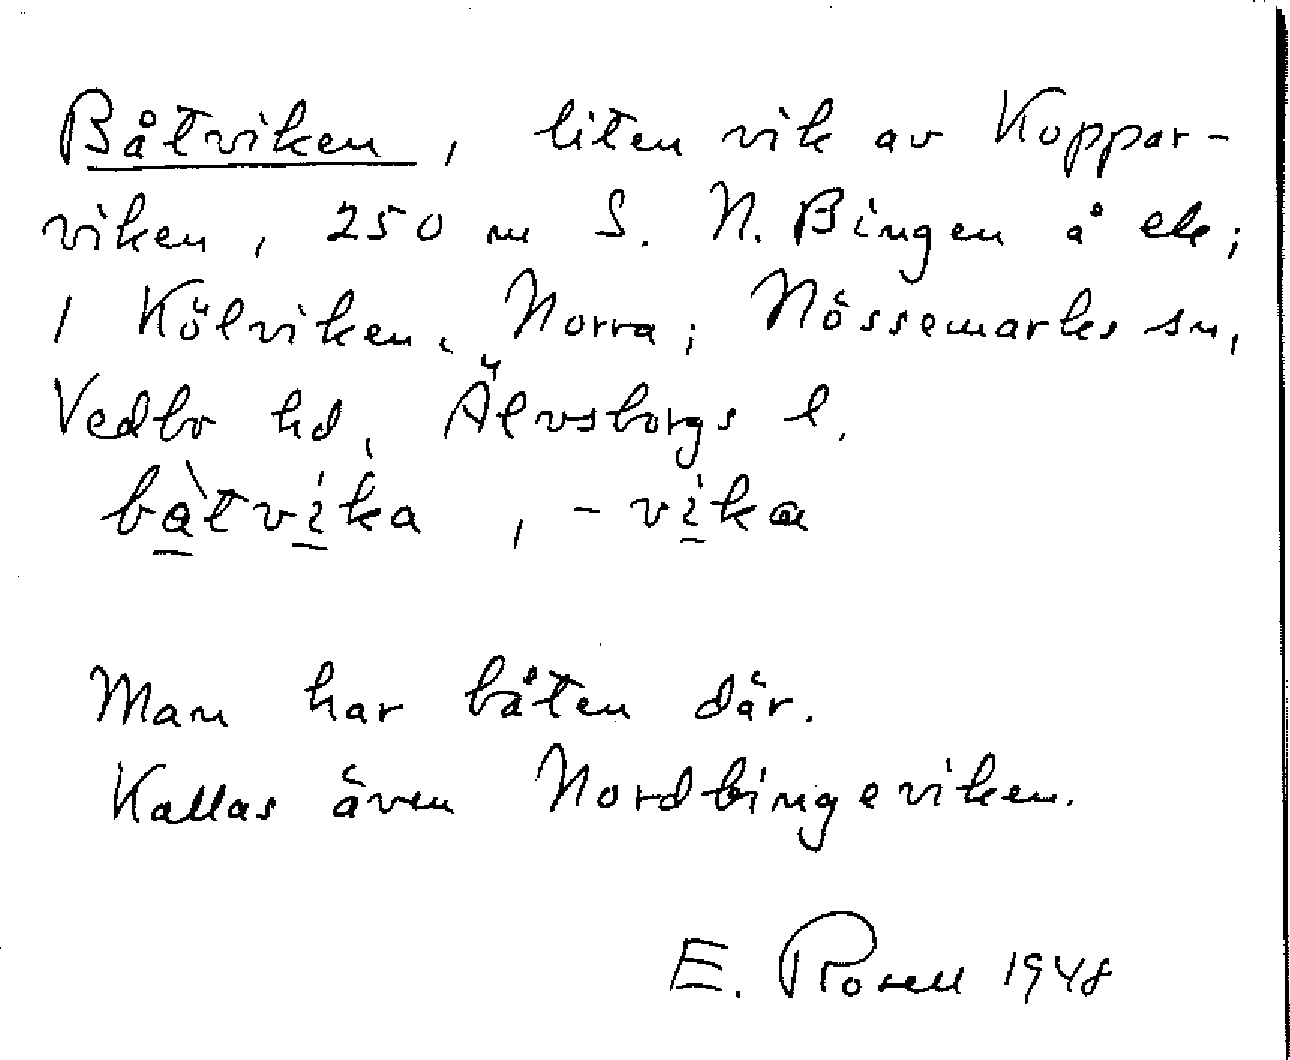 Båtviken, liten vik av Koppar-
viken, 250 m S. N. Bingen å ek;
1 Kölviken, Norra; Nössemarks sn,
Vedbo hd, Älvsborgs l.
bàtvíka, -víkα
Man har båten där.
Kallas även Nordbingeviken.
E. Rosell 1948